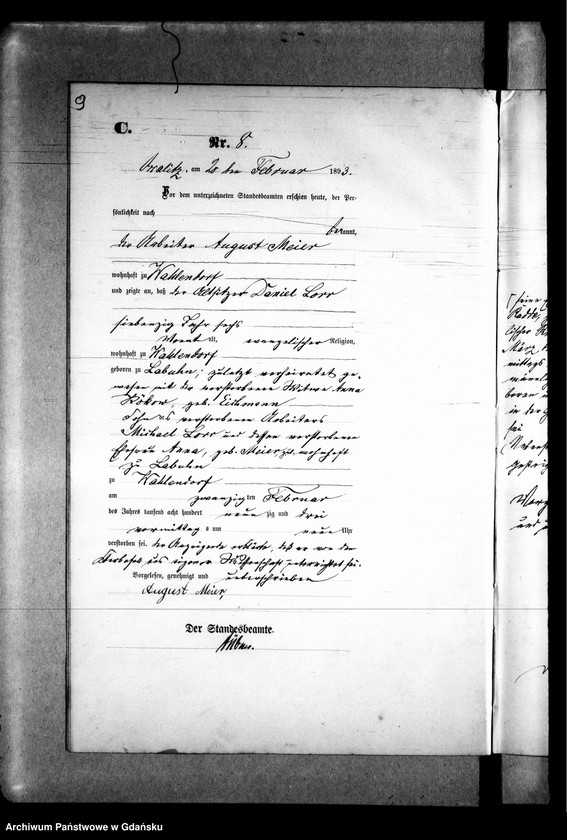 9
C.
Nr. 8.
am 20 ten Februar 1893.
Vor dem unterzeichneten Standesbeamten erschien heute, der Per-
sönlichkeit nach
bekannt,
der Arbeiter August Meier
wohnhaft zu Wahlendorf
und zeigte an, daß der Altsitzer Daniel Lorr
siebenzig Jahr sechs
Monat alt, evangelischer Religion,
wohnhaft zu Wahlendorf
geboren zu Labuhn, zuletzt verheirathet ge-
wesen mit der verstorbenen Witwe Anna
geb. Eichmann
Sohn des verstorbenen Arbeiters
Michael Lorr und dessen verstorbenen
Ehefrau Anna, geb. Meier wohnhaft
zu Labuhn
zu Wahlendorf
am zwanzigten Februar
des Jahres tausend acht hundert neunzig und drei
vormittags um neun Uhr
verstorben sei. der Anzeigende erklärte, daß er von dem
Sterbefall aus eigener Wissenschaft unterrichtet sei.
Vorgelesen, genehmigt und unterschrieben
August Meier,
Der Standesbeamte.
März
mittags
in der
sei
und
Archiwum Państwowe w Gdańsku